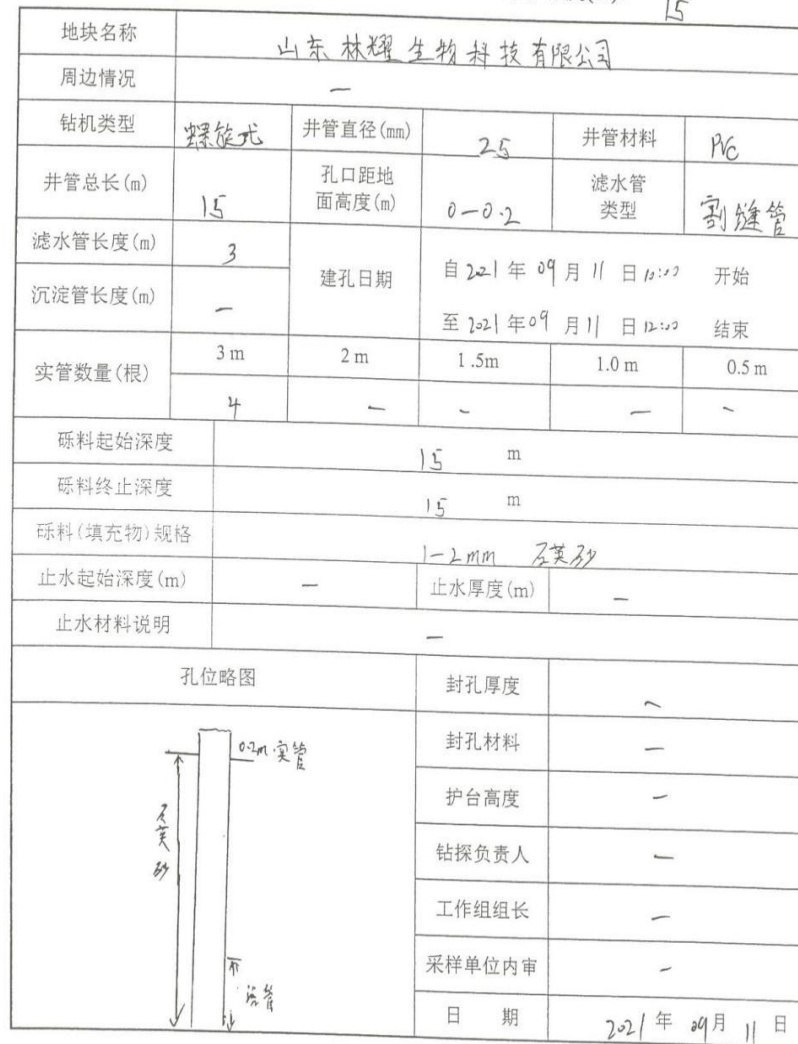 15
地块名称 山东林耀生物科技有限公司
周边情况 —
钻机类型 螺旋式 井管直径(mm) 25 井管材料 PVC
井管总长(m) 15 孔口距地面高度(m) 0-0.2 滤水管类型 割缝管
滤水管长度(m) 3 建孔日期 自2021年09月11日10:00 开始
沉淀管长度(m) — 至2021年09月11日12:00 结束
实管数量(根) 3 m 2 m 1.5m 1.0 m 0.5 m
4 — - — -
砾料起始深度 15 m
砾料终止深度 15 m
砾料(填充物)规格 1-2mm 石英砂
止水起始深度(m) — 止水厚度(m) —
止水材料说明 —
孔位略图 封孔厚度 ~
0.2m 实管 封孔材料 —
石英砂 护台高度 —
钻探负责人 —
工作组组长 —
采样单位内审 -
日 期 2021年09月11日